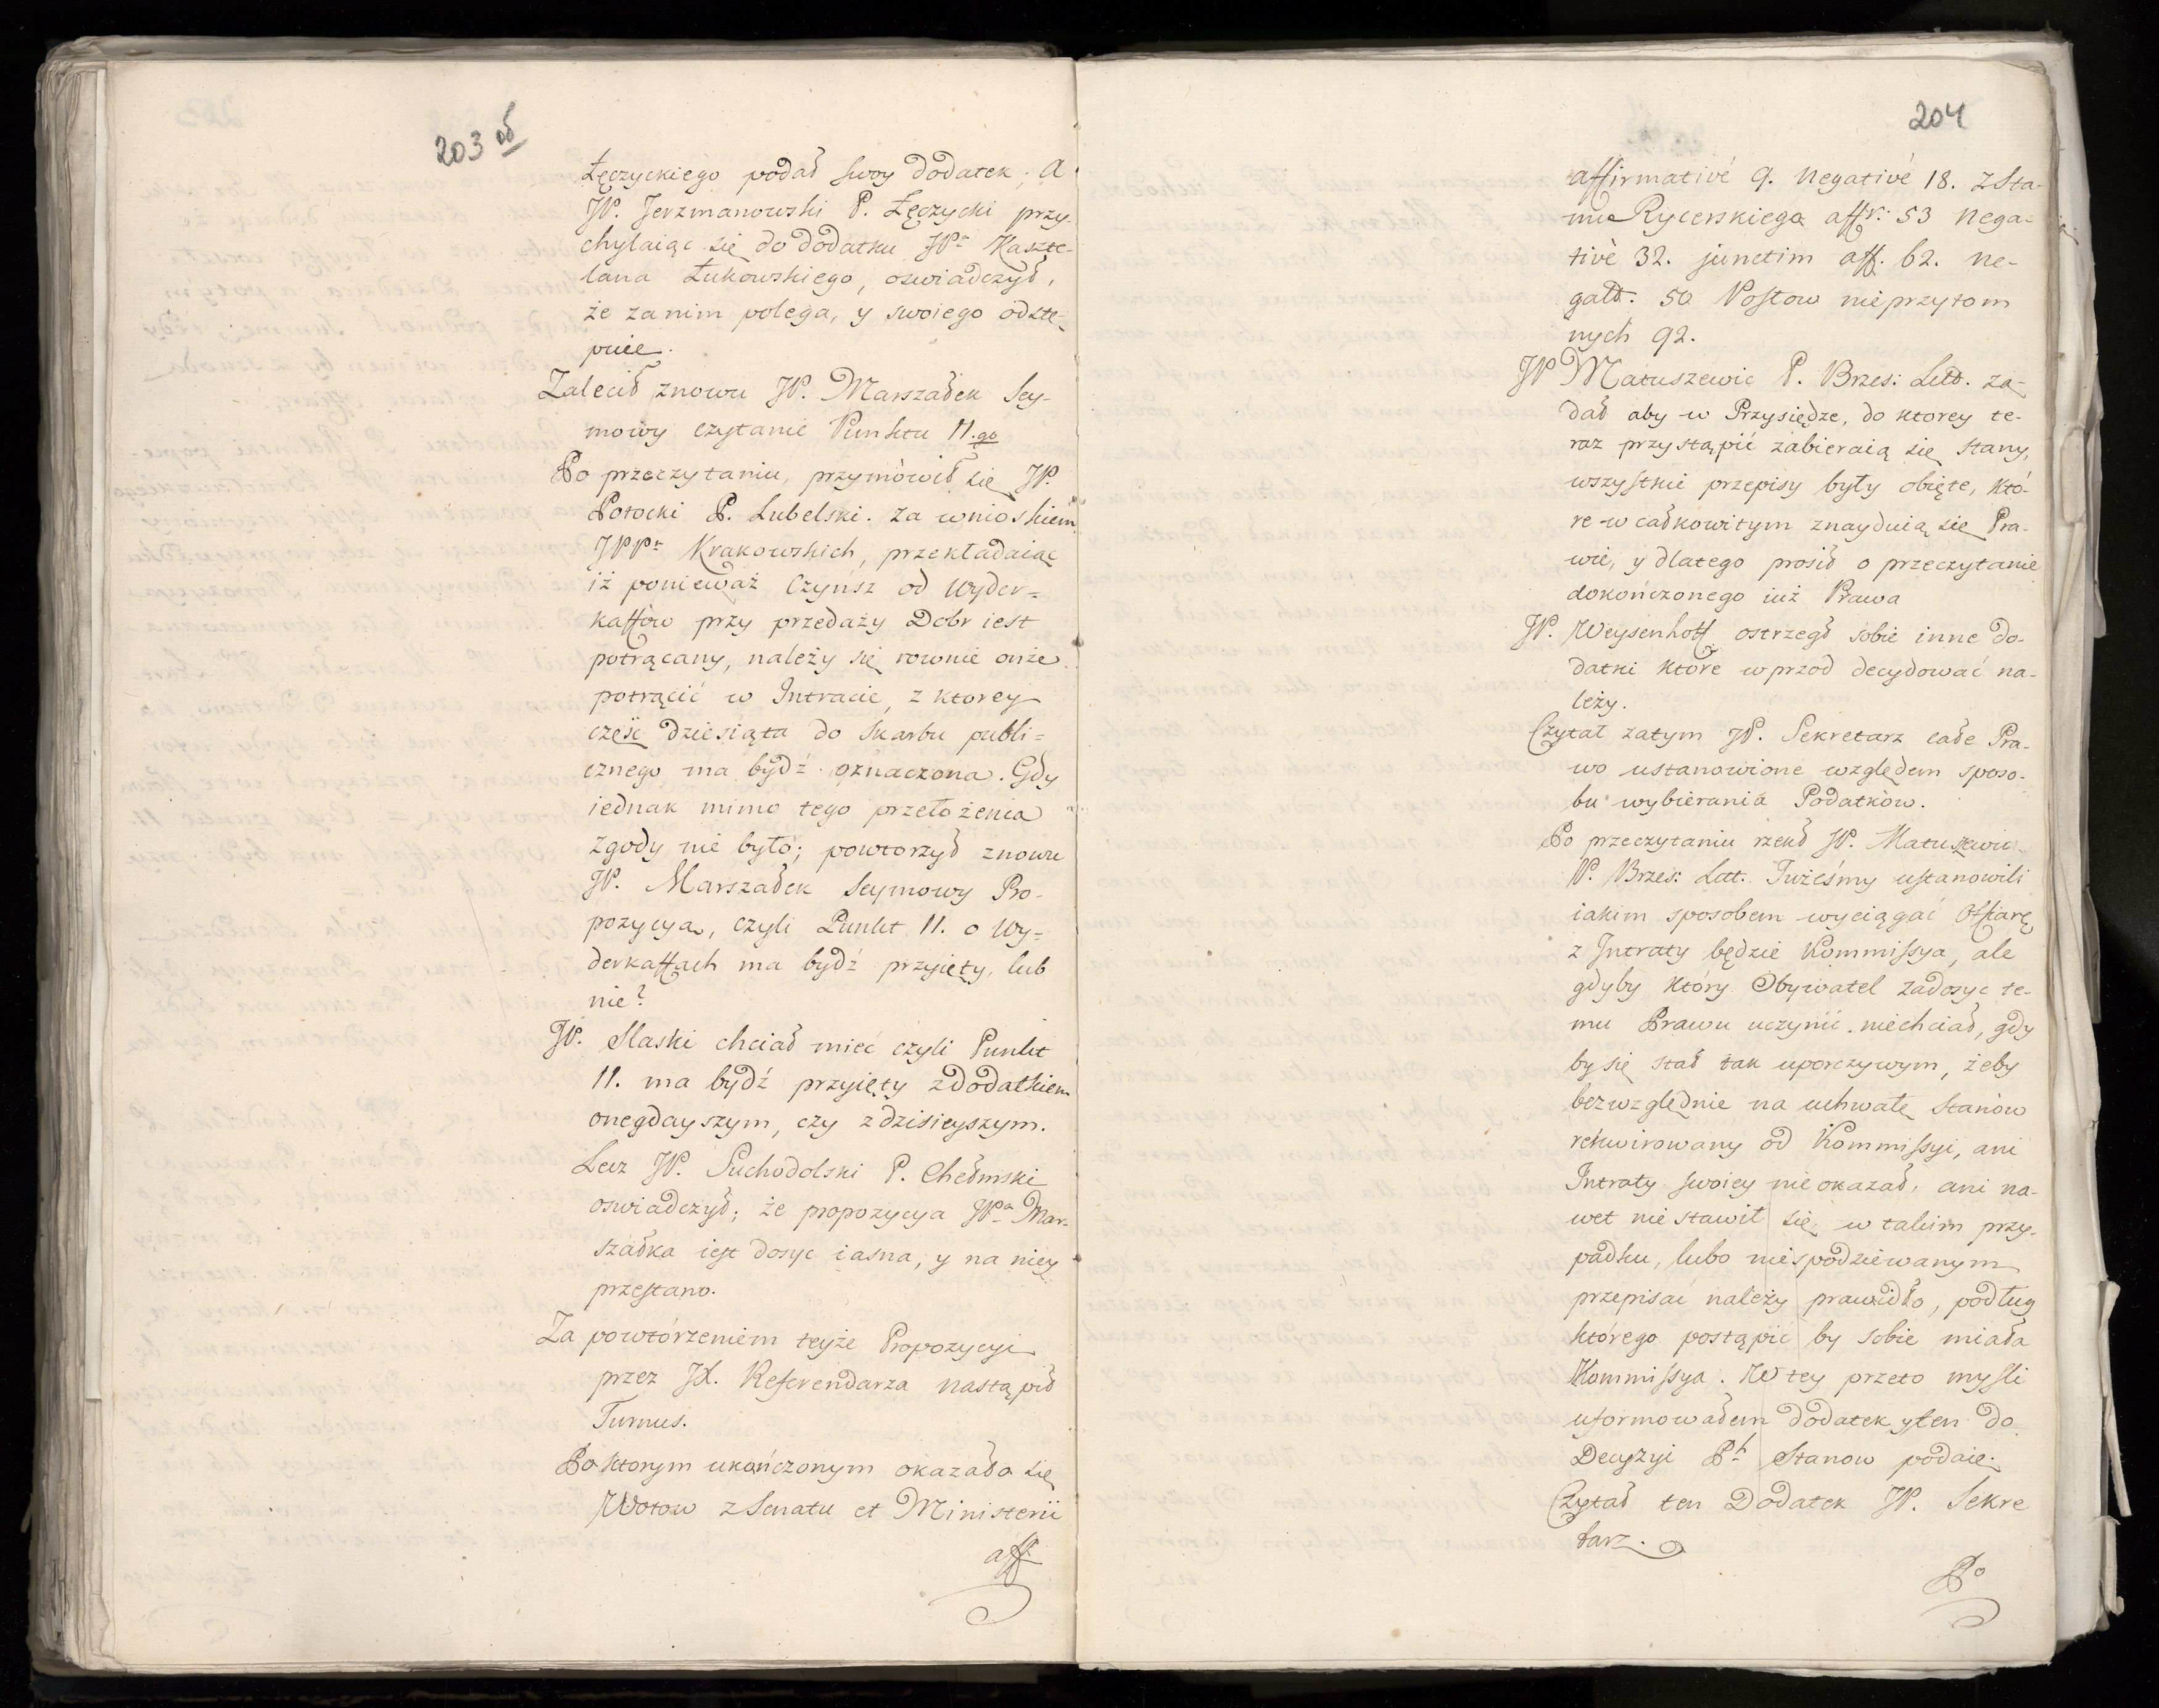 203 об
Łęczyckiego podał swoy dodatek; A
JP. Jerzmanowski P. Łęczycki przy-
chylaiąc się do dodatku JPa Kaszte-
lana Łukowskiego, oswiadczył,
że zanim polega, y swoiego odstę-
puie.
Zalecił znowu JP. Marszałek Sey-
mowy czytanie Punktu 11.go
Po przeczytaniu, przymówił się JP.
Potocki P. Lubelski. za wnioskiem
JPPw Krakowskich, przekładaiąc
iż ponieważ Czynsz od Wyder=
kaffów przy przedaży Dobr iest
potrącany, należy się rownie onże
potrącić w Intracie, z ktorey
część dziesiąta do Skarbu publi=
cznego ma bydź oznaczona. Gdy
iednak mimo tego przełożenia
zgody nie było; powtorzył znowu
JP. Marszałek Seymowy Pro-
pozycyą, czyli Punkt 11. o Wy=
derkaffach ma bydź przyięty, lub
nie?
JP. Slaski chciał mieć czyli Punkt
11. ma bydź przyięty z dodatkiem
onegdayszym, czy z dzisieyszym.
Lecz JP. Suchodolski P. Chełmski
oswiadczył; że propozycya JPa Mar-
szałka iest dosyc iasna, y na niey
przestano.
Za powtórzeniem teyże Propozycyi
przez JX. Referendarza nastąpił
Turnus.
Po ktorym ukończonym okazało się
Wotow z Senatu et Ministerii
aff:
204
affirmativé 9. Negativé 18. z Sta-
nu Rycerskiego affr: 53 Nega=
tivè 32. junctim aff. 62. ne-
gatt. 50 Posłow nieprzytom
nych 92.
JP Matuszewic P. Brzes: Litt. żą-
dał aby w Przysiędze, do ktorey te-
raz przystąpić zabieraią się Stany,
wszystkie przepisy były obięte, któ-
re w całkowitym znayduią się Pra-
wie, y dlatego prosił o przeczytanie
dokończonego iuż Prawa
JP. Weysenhoff ostrzegł sobie inne do-
datki które wprzod decydować na-
leży.
Czytał zatym JP. Sekretarz całe Pra-
wo ustanowione względem sposo-
bu wybierania Podatków.
Po przeczytaniu rzekł JP. Matuszewic
P. Brzes: Litt. Jużeśmy ustanowili
iakim sposobem wyciągać Offiarę
z Intraty będzie Kommissya, ale
gdyby który Obywatel zadosyc te-
mu Prawu uczynić niechciał, gdy
by się stał tak uporczywym, żeby
bezwzględnie na uchwałę Stanów
rekwirowany od Kommissyi, ani
Intraty swoiey nie okazał, ani na-
wet nie stawił się, w takim przy-
padku, lubo niespodziewanym
przepisac należy prawidło, podług
którego postąpić by sobie miała
Kommissya. W tey przeto mysli
uformowałem dodatek y ten do
Decyzyi Ph Stanow podaię.
Czytał ten Dodatek JP. Sekre
tarz.
Po